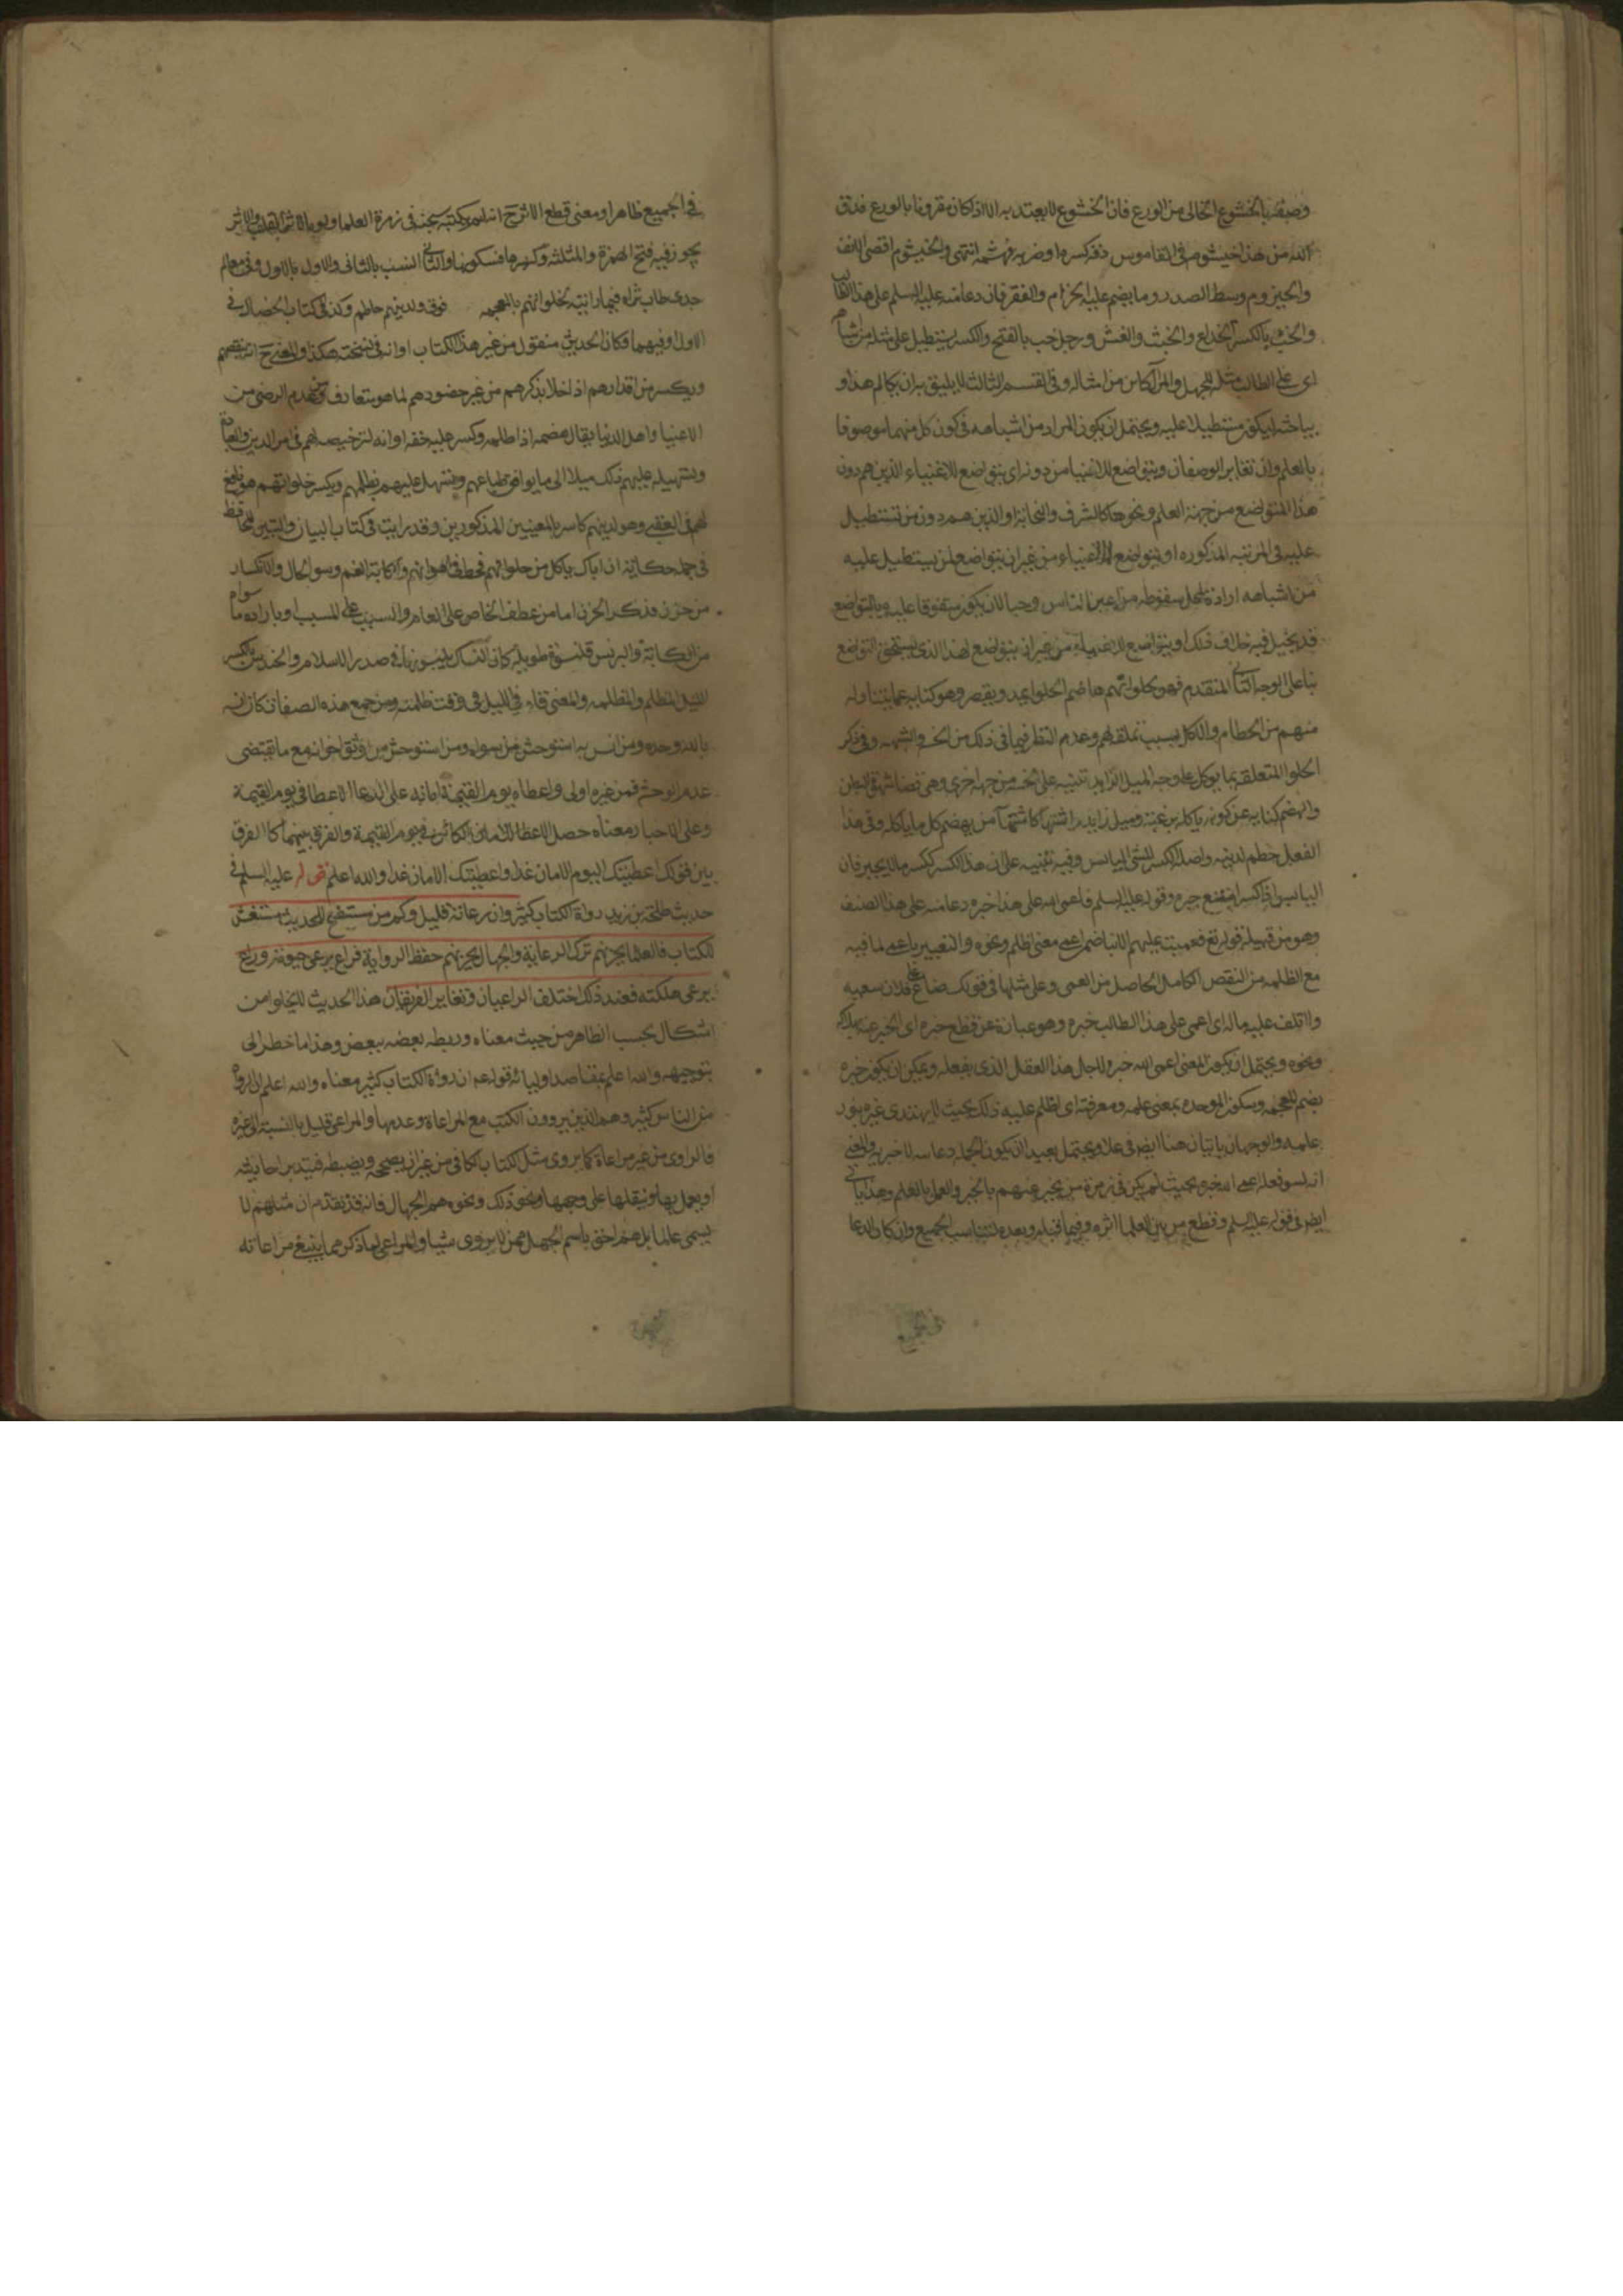 وصفه بالخشوع الخالى من الورع فان الخشوع لا يعتد به الا اذا كان مقرونا بالورع فدق
الله من هذا خيشومه فى القاموس دقه كسره او ضربه فهشمه انتهى والخيشوم اقصى الانف
والحيزوم وسط الصدر وما يضم عليه الحزام والفقر فان دعامنه عليه السلم على هذا الطالب
والخب بالكسر الخداع والخبث والغش ورجل خب بالفتح والكسر يستطيل على مثله من اشباهه
اى على الطالب مثله للجهل والمراكاس من امثاله وفى القسم الثالث لا يليق به ان يكالم هذا و
يباحثه ليكون مستطيلا عليه ويحتمل ان يكون المراد من اشباهه فى كون كل منهما موصوفا
بالعلم وان تغاير الوصفان ويتواضع للاغنيا من دونه اى يتواضع للاغنياء الذين هم دون
هذا المتواضع من جهة العلم ونحوها كالشرف والنجابه او الذين هم دون من تستطيل
عليه فى المرتبه المذكوره او يتواضع للاغنياء من غير ان يتواضع لمن يستطيل عليه
من اشباهه ارادة لمحل سقوطه من اعين الناس وحبا لان يكون متفوقا عليه وبالتواضع
قد يخيل فيه خلاف ذلك او يتواضع للاغنياء من غير ان يتواضع لهذا الذى يستحق التواضع
بنا على الوجه الثانى المتقدم فهو لحلوائهم هاضم الحلوا يمد ويقصر وهو كنايه عما يتناوله
منهم من الحطام والاكل بسبب تملقه لهم وعدم النظر فيما فى ذلك من الخسه والشبهه وفى ذكر
الحلوا المتعلقه بما يوكل على وجه الميل الزايد تنبيه على خسه من جهة اخرى وهى قضا شهوة البطن
والهضم كنايه عن كونه ياكله برغبة وميل زايد اشتهاء كاشتهاء من يهضم كل ما ياكله وفى هذا
الفعل حطم لدينه واصله الكسر للشى اليابس وفيه تنبيه على ان هذا الكسر ككسر ما لا يجبر فان
اليابس اذا كسر امتنع جبره وقوله عليه السلم فاعمى الله على هذا خبره دعامنه على هذا الصنف
وهو من قبيله قوله تع فعميت عليهم الانبا ضمن اعمى معنى اظلم ونحوه والتعبير باعمى لما فيه
مع الظلمه من النقص الكامل الحاصل من العمى وعلى مثلها فى قولك ضاع على فلان سعيه
واتلف عليه ماله اى اعمى على هذا الطالب خبره وهو عبارة عن قطع خبره اى الخبر عنه بهلاكه
ونحوه ويحتمل ان يكون المعنى اعمى الله خبره لاجل هذا العقل الذى يفعله ويمكن ان يكون خبره
بضم المعجمه وسكون الموحده بمعنى علمه ومعرفته اى اظلم عليه ذلك بحيث لا يهتدى غيره بنور
علمه والوجهان ياتيان هنا ايضا فى علا ويحتمل بعيدا ان تكون الجمله دعائيه لا خبريه والمعنى
انه لسو فعله اعمى الله خبره بحيث لم يكن فى زمرة من يخبر عنهم بالخبر والعمل بالعلم وهذا ياتى
ايضا فى قوله عليه السلم وقطع من بين العلما اثره وفيما قبله وبعده لتناسب الجميع وان كان الدعا
فى الجميع
فى الجميع ظاهرا ومعنى قطع الاثر ح انه لم يكتبه بحيث فى زمرة العلما
يجوز فيه فتح الهمزة والمثلثه وكسرها فسكونها والثانى انسب بالثانى والاول بالاول وفى معالم
جدى طاب ثراه فيما رايته لحلوائهم بالمعجمه فوق ولدينهم حاطم وكذا فى كتاب الخصال فى
الاول وفيهما وكان الحديث منقول من غير هذا الكتاب او انه فى نسخته هكذا والمعنى ح انه يهضمهم
ويكسر من اقدارهم اذا خلا بذكرهم من غير حضورهم لما هو متعارف من عدم الرضى من
الاغنيا واهل الدنيا يقال هضمه اذا ظلمه وكسر عليه حقه او انه لترخيصه لهم فى امر الدين والعبادة
وتسهيله عليهم ذلك ميلا الى ما يوافق طباعهم ويسهل عليهم بظلمهم ويكسر خلواتهم
لهم فى العقبى وهو لدينهم كاسر بالمعنيين المذكورين وقد رايت فى كتاب البيان والتبيين للجاحظ
فى جمله حكاية ان اباك ياكل من حلوائهم فحط فى اهوائهم والكابة الغم وسو الحال والانكسار
من حزن فذكر الحزن اما من عطف الخاص على العام والسبب على المسبب او بارادة ما سواه
من الكابة والبرنس قلنسوة طويله كان النساك يلبسونها فى صدر الاسلام والحندس بالكسر
الليل المظلم والظلمه والمعنى قام فى الليل فى وقت ظلمته ومن جمع هذه الصفات كان انسه
بالله وحده ومن انس به استوحش من سواه ومن استوحش من اوثق اخوانه مع ما يقتضى
عدم الوحشه فمن غيره اولى واعطاه يوم القيمة امانه على الدعا الاعطا فى يوم القيمة
وعلى الاخبار معناه حصل الاعطا للامان الكائن فى يوم القيمة والفرق بينهما كالفرق
بين قولك اعطيتك اليوم الامان غدا واعطيتك الامان غدا والله اعلم قوله عليه السلم فى
حديث طلحة بن زيد رواة الكتاب كثير وان رعاته قليل وكم من مستنصح للحديث مستغش
للكتاب فالعلما يحزنهم ترك الرعاية والجهال يحزنهم حفظ الرواية فراع يرعى حيوته وراع
يرعى هلكته فعند ذلك اختلف الراعيان وتغاير الفريقان هذا الحديث لا يخلو من
اشكال بحسب الظاهر من حيث معناه وربطه بعضه ببعض وهذا ما خطر لى
بتوجيهه والله اعلم بمقاصد اوليائه قوله عم ان رواة الكتاب كثير معناه والله اعلم ان الرواة
من الناس كثير وهم الذين يروون الكتب مع المراعاة وعدمها والمراعى قليل بالنسبة الى غيره
فالراوى من غير مراعاة كما يروى مثل كتاب الكافى من غير ان يصححه ويضبطه فيتدبر احاديثه
او يعمل بها وينقلها على وجهها ونحو ذلك ونحوه هم الجهال فانه قد تقدم ان مثلهم لا
يسمى عالما بل هم احق باسم الجهل ممن لا يروى شيا والمراعى لما ذكر مما ينبغى مراعاته